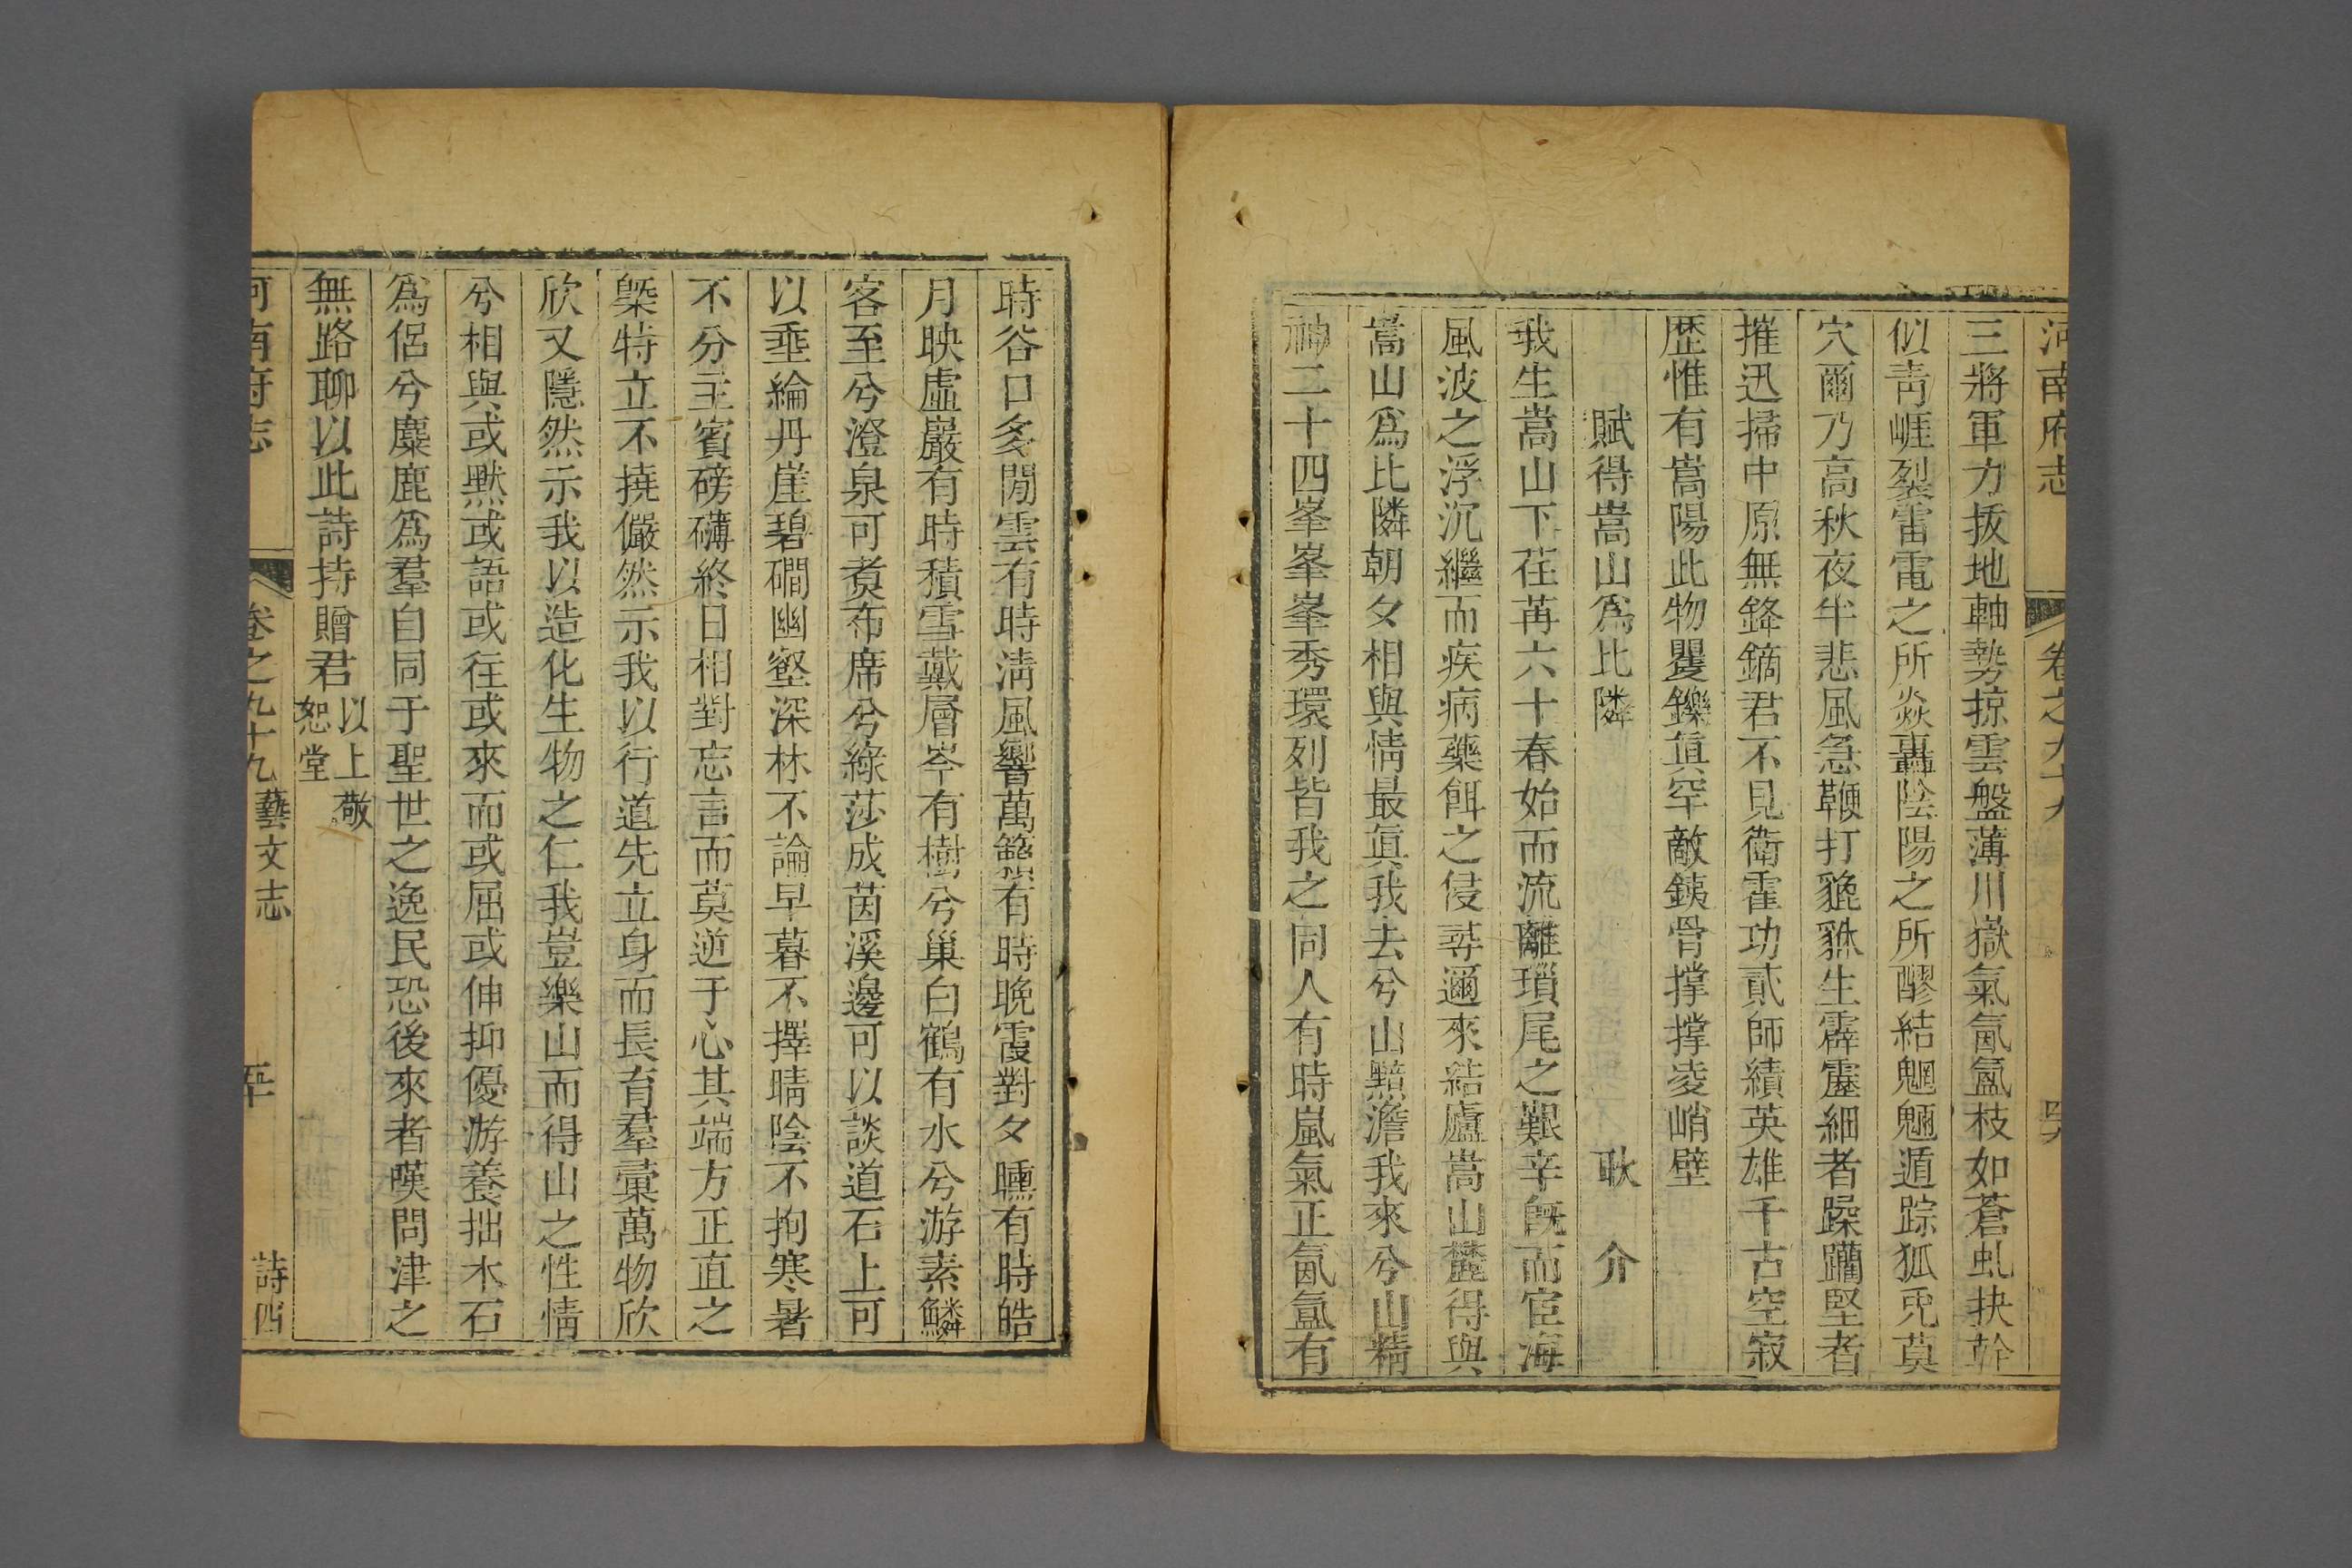 河南府志 卷之九十九
三將軍力拔地軸勢掠雲盤薄川嶽氣氤氳枝如蒼虬抉幹
似靑崕裂雷電之所焱轟陰陽之所醪結魍魎遁踪狐兎莫
穴爾乃高秋夜半悲風急鞭打貔貅生霹靂細者躁躪堅者
摧迅掃中原無鋒鏑君不見衛霍功貳師績英雄千古空寂
歷惟有嵩陽此物矍鑠眞罕敵銕骨撑撑凌峭壁
賦得嵩山爲比隣 耿介
我生嵩山下荏苒六十春始而流離瑣尾之艱辛旣而宦海
風波之浮沉繼而疾病藥餌之侵尋邇來結廬嵩山麓得與
嵩山爲比隣朝夕相與情最眞我去兮山黯澹我來兮山精
神二十四峯峯峯秀環列皆我之同人有時嵐氣正氤氳有
時谷口多閒雲有時淸風響萬籟有時晚霞對夕曛有時皓
月映虛巖有時積雪戴層岑有樹兮巢白鶴有水兮游素鱗
客至兮澄泉可煑布席兮綠莎成茵溪邊可以談道石上可
以垂綸丹崖碧磵幽壑深林不論早暮不擇晴陰不拘寒暑
不分主賓磅礴終日相對忘言而莫逆于心其端方正直之
槩特立不撓儼然示我以行道先立身而長育羣彙萬物欣
欣又隱然示我以造化生物之仁我豈樂山而得山之性情
兮相與或默或語或往或來而或屈或伸抑優游養拙木石
爲侶兮麋鹿爲羣自同于聖世之逸民恐後來者嘆問津之
無路聊以此詩持贈君 以上敬恕堂
河南府志 卷之九十九 藝文志 五十 詩四